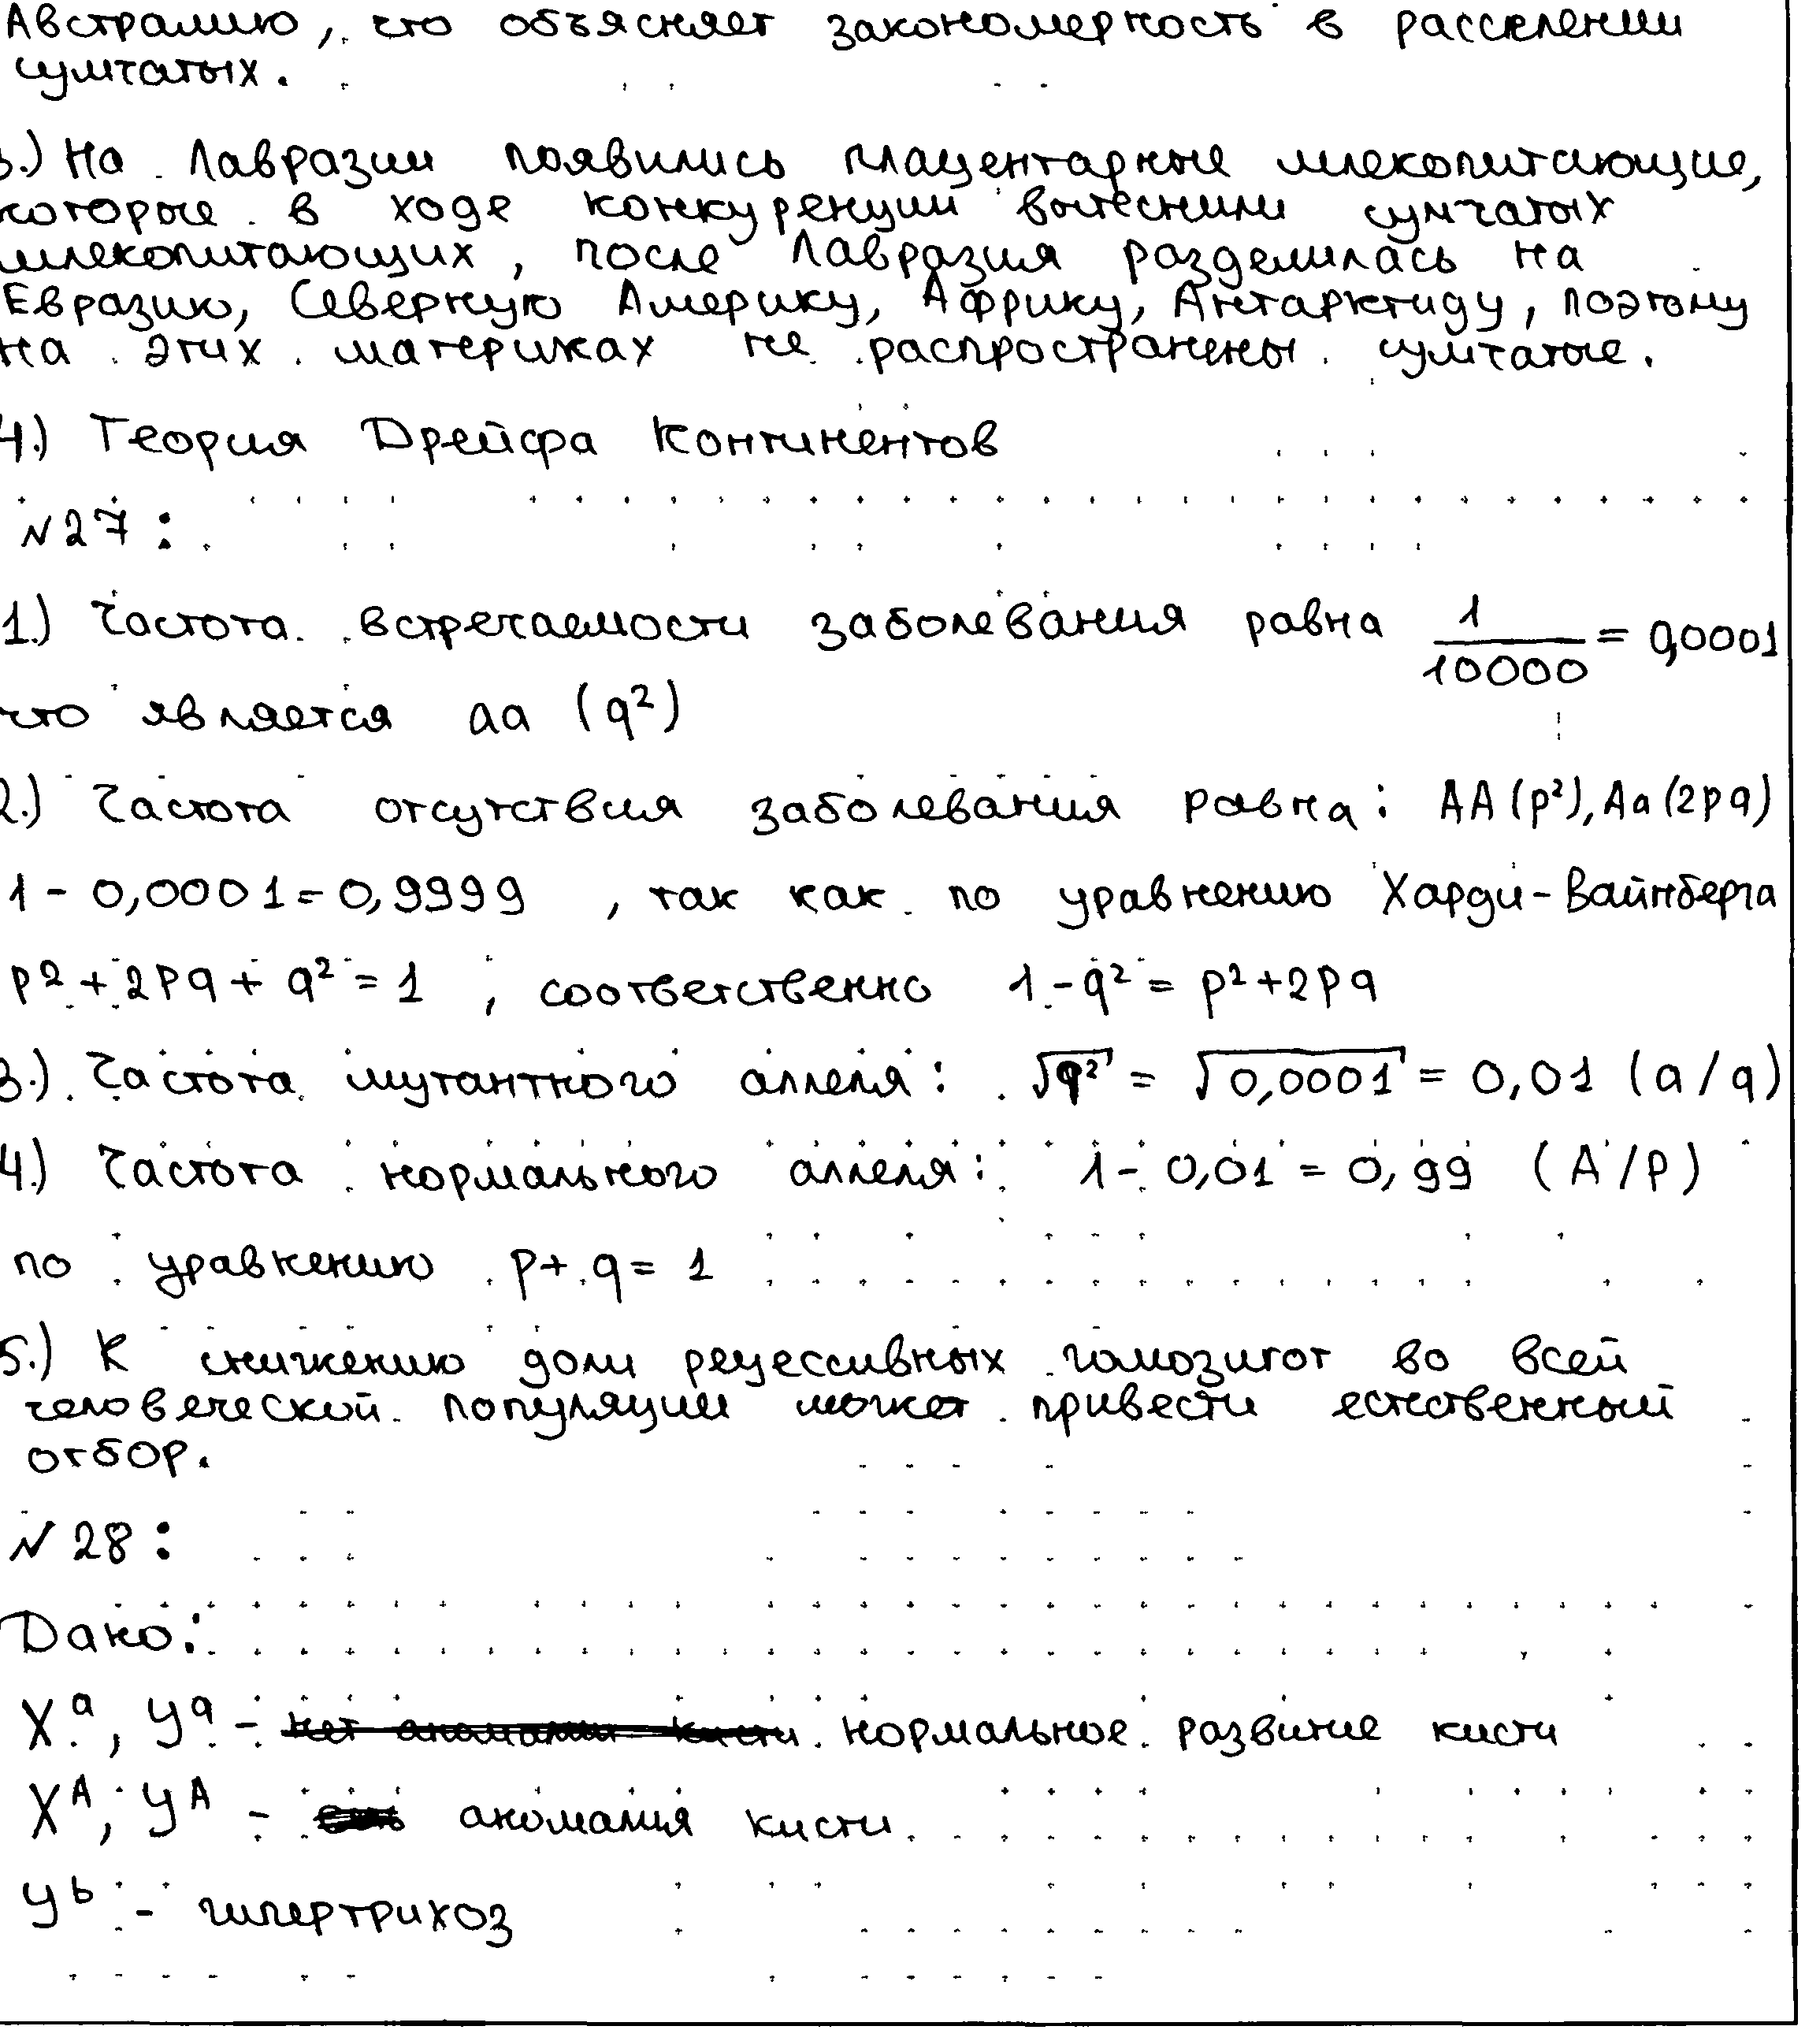 Австралию, что объясняет закономерность в расселении
сумчатых.
3.) На Лавразии появились плацентарные млекопитающие,
которые в ходе конкуренции вытеснили сумчатых
млекопитающих, после Лавразия разделилась на
Евразию, Северную Америку, Африку, Антарктиду, поэтому
на этих материках не распространены сумчатые.
4.) Теория Дрейфа Континентов
№27:
1.) Частота встречаемости заболевания равна 1/10000 = 0,0001
что является aa (q²)
2.) Частота отсутствия заболевания равна: AA (p²), Aa (2pq)
1 - 0,0001 = 0,9999 , так как по уравнению Харди-Вайнберга
p² + 2pq + q² = 1 , соответственно 1 - q² = p² + 2pq
3.) Частота мутантного аллеля: √q² = √0,0001 = 0,01 (a/q)
4.) Частота нормального аллеля: 1 - 0,01 = 0,99 (A/p)
по уравнению p + q = 1
5.) К снижению доли рецессивных гомозигот во всей
человеческой популяции может привести естественный
отбор.
№28:
Дано:
Xᵃ, Yᵃ - нет аномалии кисти нормальное развитие кисти
Xᴬ, Yᴬ - аномалия кисти
Yᵇ - гипертрихоз